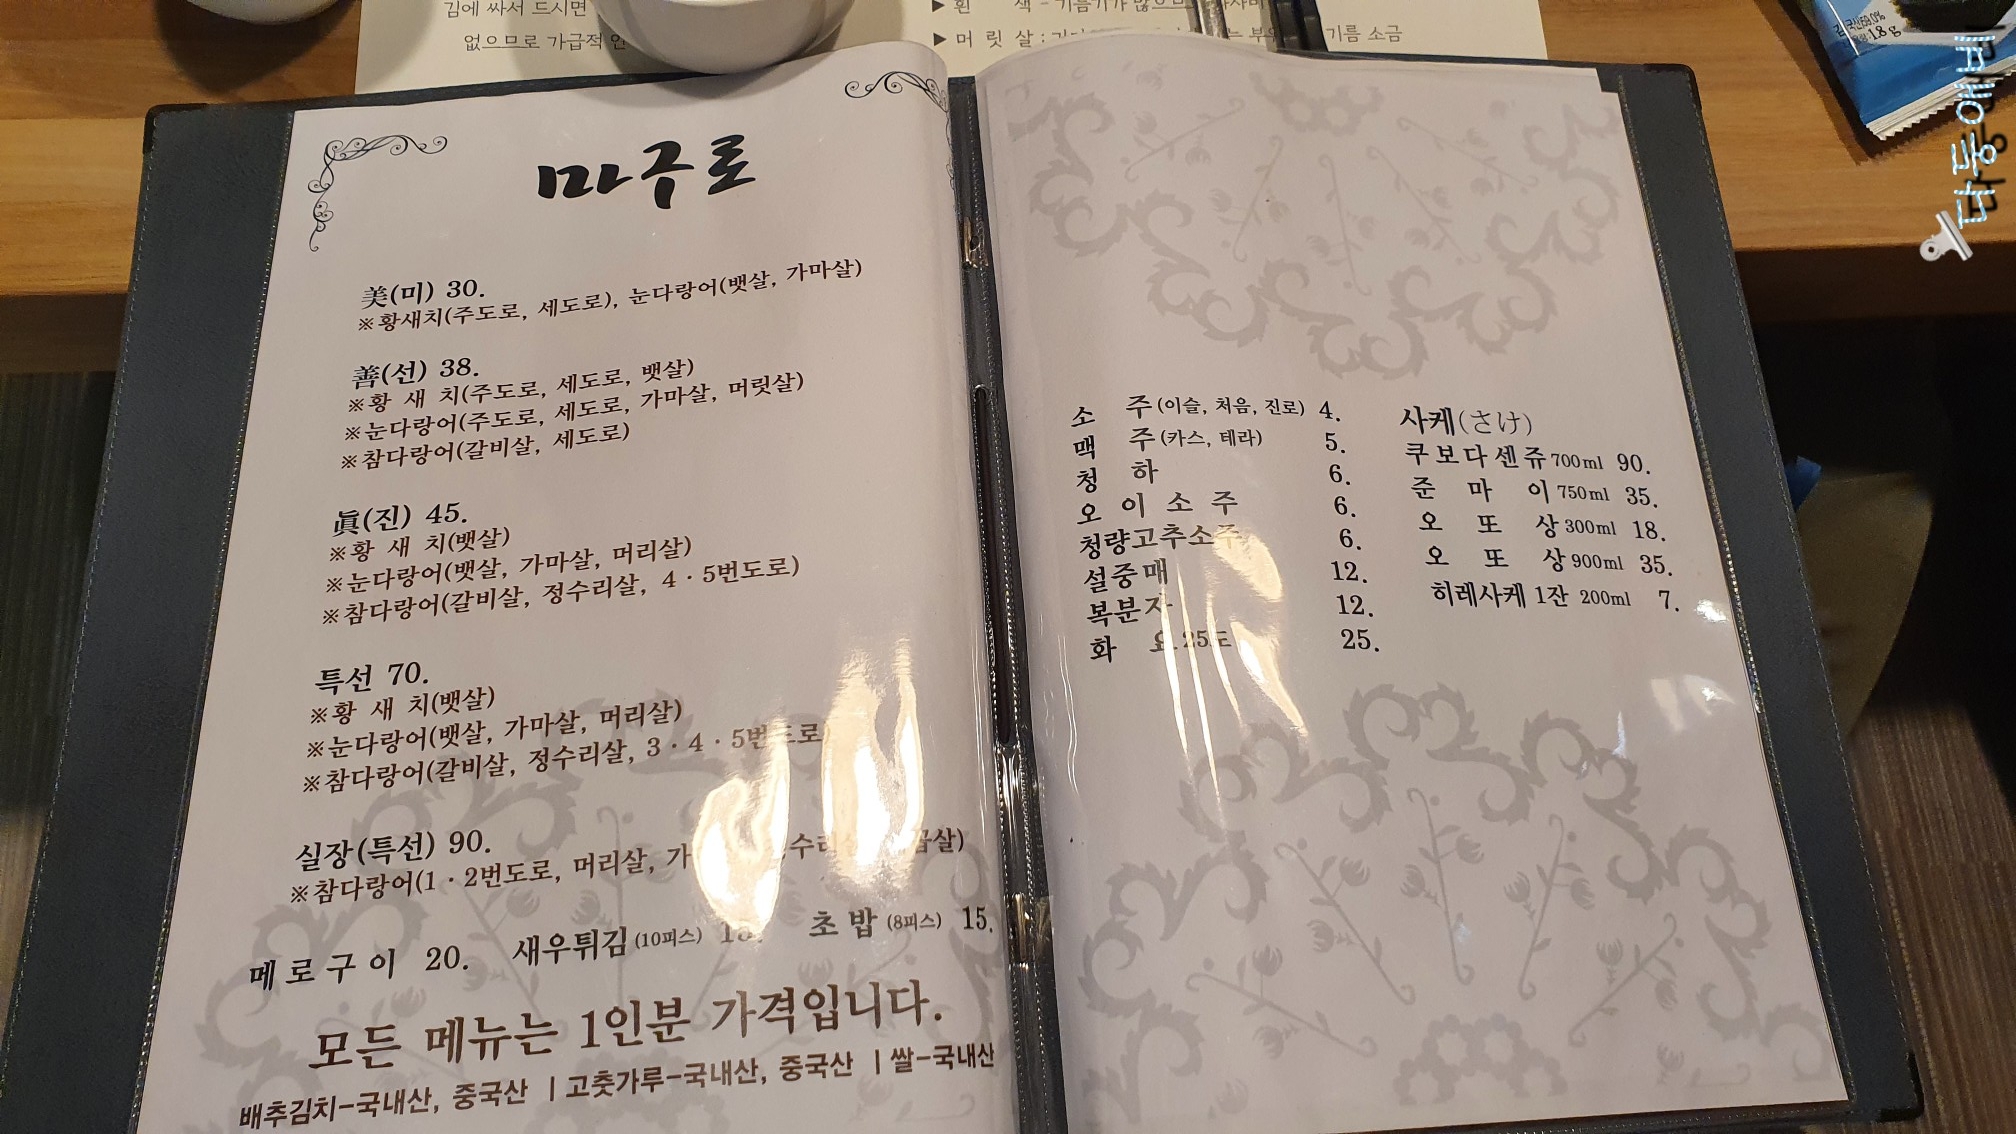 김에 싸서 드시면
없으므로 가급적
▶ 흰 색 - 기름기가 많으므로
▶ 머 릿 살 : 부위 기름 소금
1.8 g
마구로
美(미) 30.
※황새치(주도로, 세도로), 눈다랑어(뱃살, 가마살)
善(선) 38.
※황 새 치(주도로, 세도로, 뱃살)
※눈다랑어(주도로, 세도로, 가마살, 머릿살)
※참다랑어(갈비살, 세도로)
眞(진) 45.
※황 새 치(뱃살)
※눈다랑어(뱃살, 가마살, 머리살)
※참다랑어(갈비살, 정수리살, 4·5번도로)
특선 70.
※황 새 치(뱃살)
※눈다랑어(뱃살, 가마살, 머리살)
※참다랑어(갈비살, 정수리살, 3·4·5번도로)
실장(특선) 90.
※참다랑어(1·2번도로, 머리살,
메로구이 20. 새우튀김(10피스) 초밥(8피스) 15.
모든 메뉴는 1인분 가격입니다.
배추김치-국내산, 중국산 | 고춧가루-국내산, 중국산 | 쌀-국내산
소 주(이슬, 처음, 진로) 4.
맥 주(카스, 테라) 5.
청 하 6.
오 이 소 주 6.
청량고추소주 6.
설중매 12.
복분자 12.
화 요 25도 25.
사케(さけ)
쿠보다센쥬 700ml 90.
준 마 이 750ml 35.
오 또 상 300ml 18.
오 또 상 900ml 35.
히레사케 1잔 200ml 7.